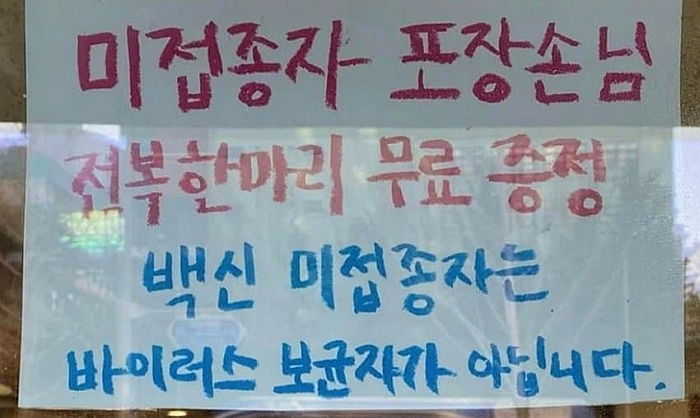 미접종자 포장손님
전복한마리 무료 증정
백신 미접종자는
바이러스 보균자가 아닙니다.